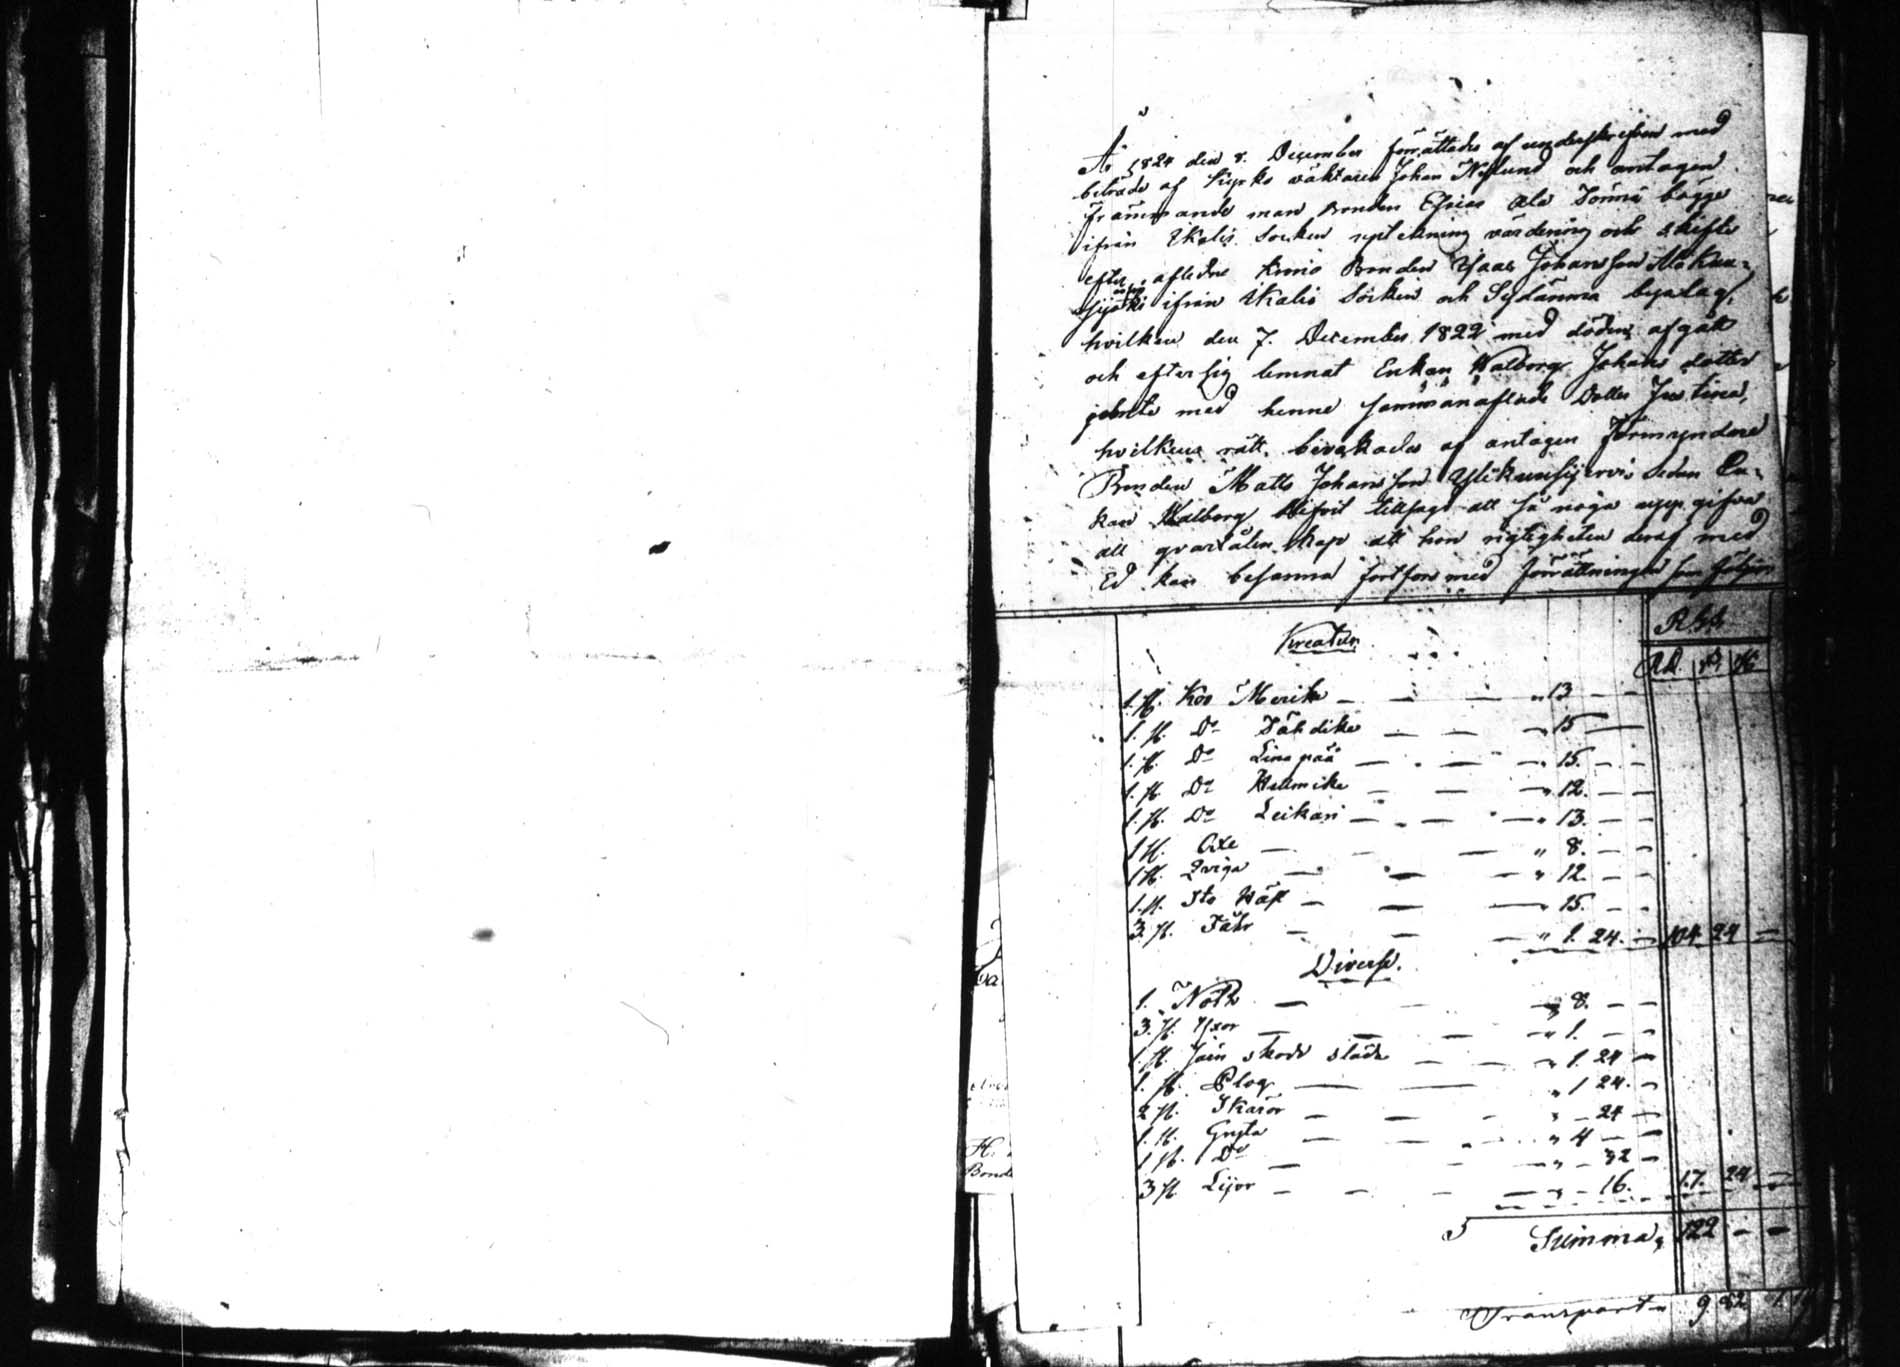 År 1824 den 8. December förättades af underskrifven med
biträde af Kyrko väktaren Johan Nylund och antagen
främmande man Bonden Esaias Ala Sömmi bägge
ifrån Ikalis Socken uptekning värdering och skifte
efter aflidne Krono Bonden Isaac Johansson
ifrån Ikalis Socken och Sydänmaa byalag,
hvilken den 7. December 1822 med döden afgått
och efter sig lemnat Enkan Walborg Johans dotter
jemte med henne sammanaflade Dotter Justina,
hvilkens rätt bevakades af antagen Förmyndare
Bonden Matts Johansson sedan En-
kan Walborg blifvit tillsagd att så noga uppgifva
all qvarlåtenskap att hon rigtigheten deraf med
Ed kan besanna fortfors med förrättningen som följer
Kreatur
R.gs.
RD. ß. rst.
1. st. Koo Merike — — — " 13 — —
1. st. Do Tähdike — — — " 15 — —
1. st. Do Linapää — — — " 15. — —
1. st. Do Helmike — — — " 12. — —
1. st. Do Leikari — — — " 13. — —
1 st. Oxe — — — " 8. — —
1 st. Qviga — — — " 12 — —
1. st. Sto — — — " 15. — —
3. st. Fåhr — — — " 1. 24. — 104 24 —
Diverse.
1. Noth — — " 8. — —
3. st. Yxor — — — " 1. — —
1. st. Järn skodd släde — — " 1. 24 —
1. st. Plog — — " 1 24. —
2 st. Skäror — — — " — 24 —
1. st. Gryta — — — " 4 — —
1 st. Do — — — " — 32 —
3 st. Lijor — — — " — 16. 17. 24 —
Summa, 122 — —
Transport